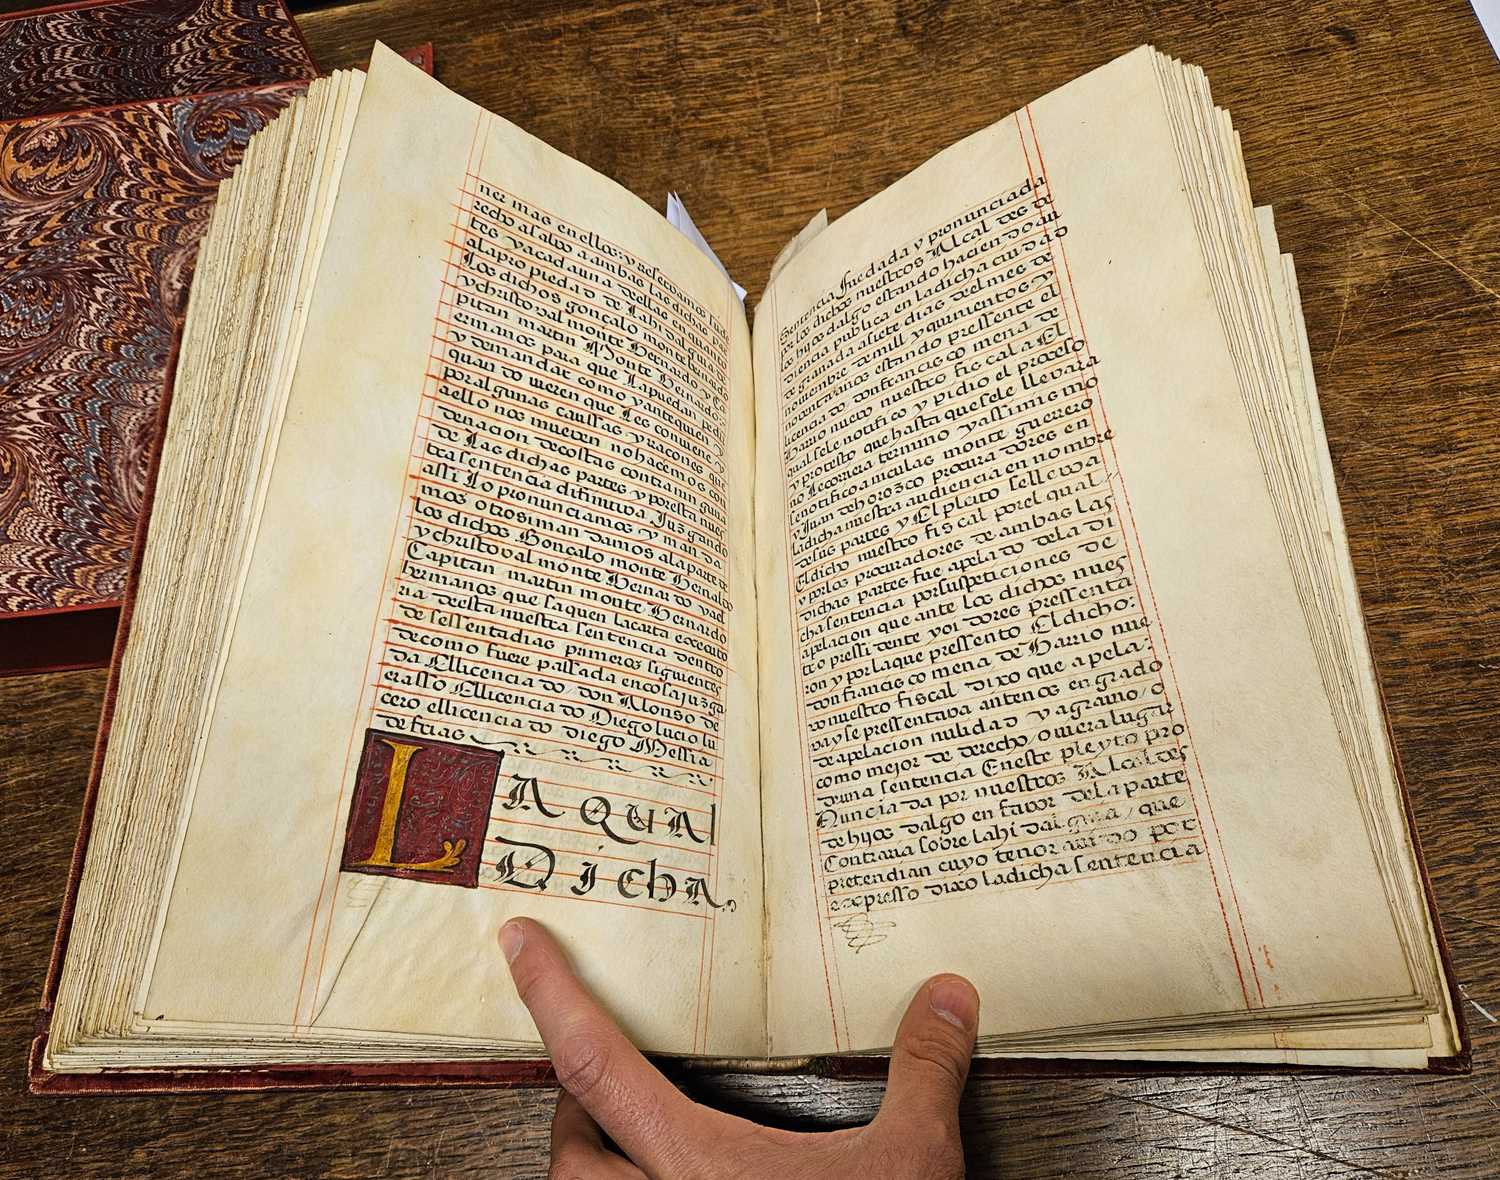 ner mas en ellos: y reservamos su de
recho a salvo a ambas las dichas par
tes y a cada una dellas en quanto
ala propiedad de la hidalguia a
los dichos gonçalo monte bernaldo
y christoval monte Bernardo y ca
pitan martin Monte Bernardo
ermanos para que la puedan pedir
y demandar como y ante quien y
quan do vieren que les conviene y
por algunas caussas y raçones que
a ello nos mueven no hacemos con
denacion de costas contra ninguna
de las dichas partes y por esta nues
tra sentencia difinitiva Juzgando
assi lo pronunciamos y manda
mos otrosi mandamos ala parte de
los dichos Gonçalo monte Bernaldo
y christoval monte Bernardo y del
Capitan martin monte Bernardo
hermanos que saquen la carta executo
ria desta nuestra sentencia dentro
de sessenta dias primeros siguientes
de como fuere passada en cosa juzga
da El licencia do don Alonso de
erasso El licencia do Diego lucio lu
cero el licencia do diego Messia
de frias
LA QUAL
DichA
sentencia fue dada y pronunciada
por los dichos nuestros Alcaldes de
los hijos dalgo estando haciendo au
diencia publica en la dicha ciudad
de granada a siete dias del mes de
noviembre de mill y quinientos y
noventa y años estando pressente el
licencia do don francisco mena de
Barrio nuevo nuestro fiscal a El
qual se le notifico y pidio el proceso
y protesto que hasta que se le llevara
no le corriera termino y assimismo
se notifico a niculas monte guerrero
y Juan de horozco procuradores en
la dicha nuestra audiencia en nombre
de sus partes y El pleito se llevo a
El dicho nuestro fiscal por el qual,
y por los procuradores de ambas las
dichas partes fue apelado de la di
cha sentencia por suspeticiones de
apelacion que ante los dichos nues
tro pressidente y oidores pressenta
ron y por la que pressento El dicho:
don francisco mena de Barrio nue
vo nuestro fiscal dixo que apela:
va y se pressentava ante nos en grado
de apelacion nulidad y agravio / o
como mejor de derecho / oviera lugar
de una sentencia En este pleyto pro
Nuncia da por nuestros Alcaldes
de hijos dalgo en favor de la parte
Contraria sobre la hidalguia / que
pretendian cuyo tenor avido por
expresso dixo la dicha sentencia